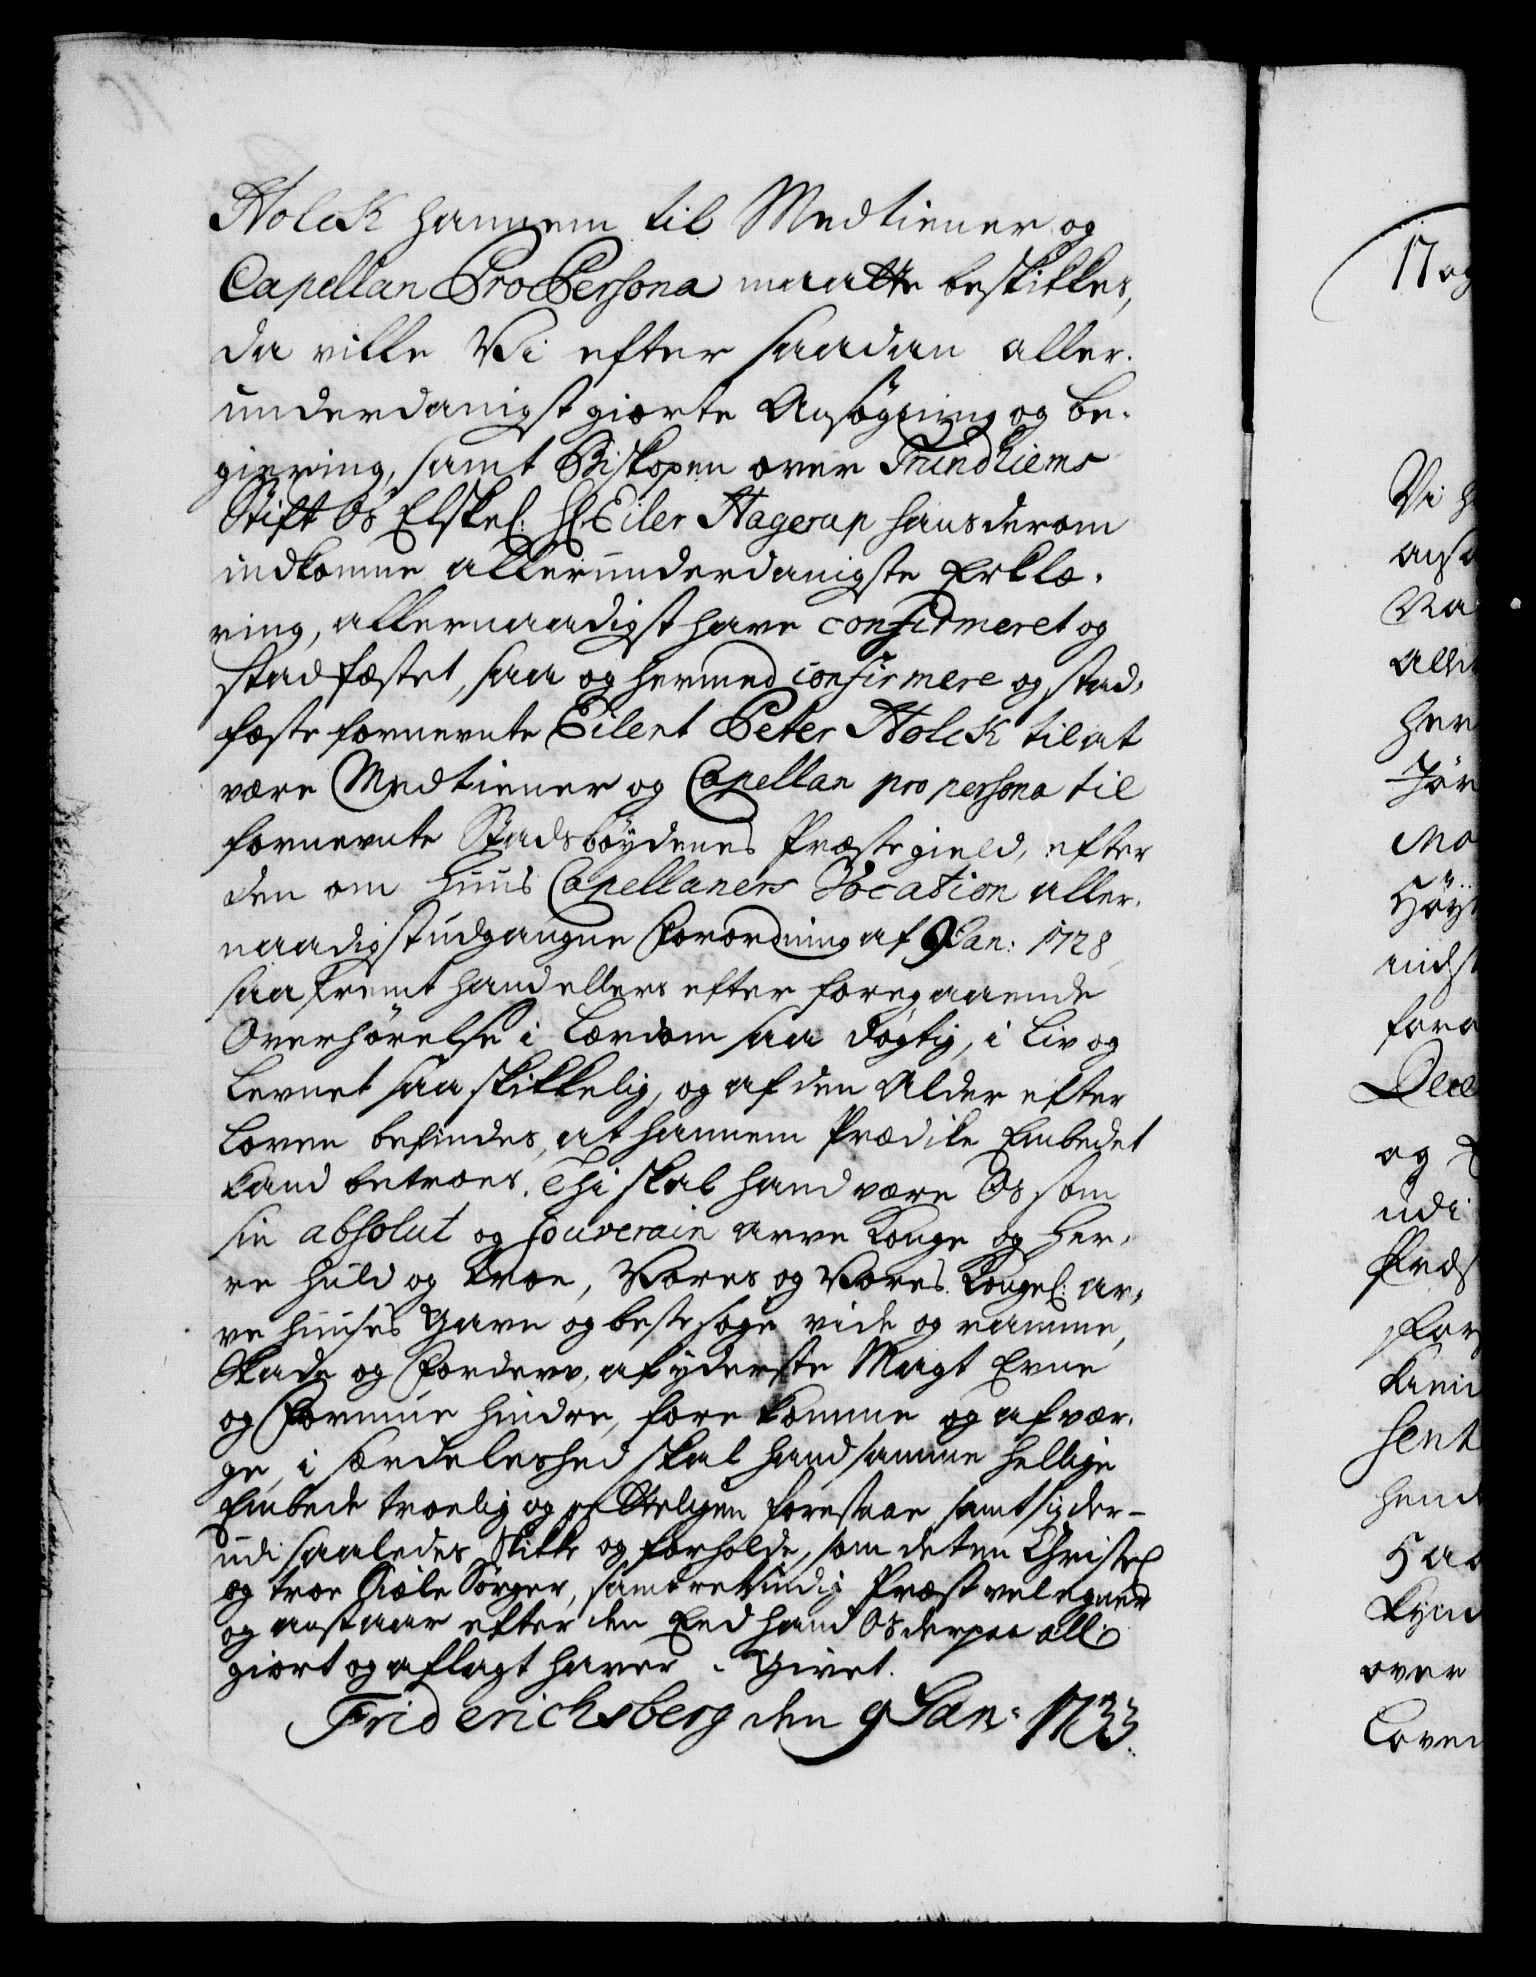 Holck hannem til Medtiener og
Capellan Pro Persona maatte beskikkes,
da ville Vi efter saadan aller-
underdanigst giorte Ansøgning og be-
giering, samt Biskopen over Trundhiems
Stift Os Elskel: Hr Eiler Hagerup hans derom
indkomne allerunderdanigste Erklæ-
ring, allernaadigst have confirmeret og
stadfæstet, saa og hermed confirmere og stad-
fæste fornevnte Eilert Peter Holck til at
være Medtiener og Capellan pro persona til
fornevnte Stadsbøydenes Præstegield, efter
den om Huus Capellaners Vocation aller-
naadigst udgangne Forordning af 9 Jan: 1728,
saafremt hand ellers efter foregaaende
Overhørelse i Lærdom saa døgtig, i Liv og
Levnet saa skikkelig, og af den Alder efter
Loven befindes, at hannem Prædike Embedet
kand betroes. Thi skal hand være Os som
sin absolut og souverain arve Konge og Her-
re huld og troe, Vores og Vores Kongel: ar-
ve Huuses Gavn og beste søge vide og ramme,
Skade og Forderv, af yderste Magt Evne
og Formue hindre, forekomme og afvær-
ge, i særdeleshed skal hand samme hellige
Embede troelig og rettelig forestaae samt sig der-
udi saaledes skikke og forholde, som det en Christel:
og troe Siæle Sørger, samt retsindig Præst vel egner
og anstaar efter den Eed hand Os derpaa all:
giort og aflagt haver. Givet.
Friderichsberg den 9 Jan: 1733.
17 og
Vi
her
og
udi
over